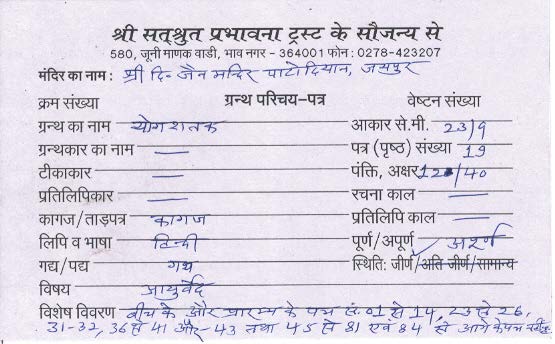 श्री सत्श्रुत प्रभावना ट्रस्ट के सौजन्य से
580, जूनी माणक वाडी, भाव नगर - 364001 फोन : 0278-423207
मंदिर का नाम : श्री दि- जैन मन्दिर पाटोदियान, जयपुर
क्रम संख्या ग्रन्थ परिचय-पत्र वेष्टन संख्या
ग्रन्थ का नाम योगशतक आकार से.मी. 23/9
ग्रन्थकार का नाम — पत्र (पृष्ठ) संख्या 19
टीकाकार — पंक्ति, अक्षर 12/40
प्रतिलिपिकार — रचना काल —
कागज/ताड़पत्र कागज प्रतिलिपि काल —
लिपि व भाषा हिन्दी पूर्ण/अपूर्ण अपूर्ण
गद्य/पद्य गद्य स्थिति: जीर्ण/अति जीर्ण/सामान्य
विषय आयुर्वेद
विशेष विवरण बीच के और प्रारम्भ के पत्र सं. 01 से 14, 23 से 26,
31-32, 36 से 41 और 43 तथा 45 से 81 एवं 84 से आगे के पत्र नहीं